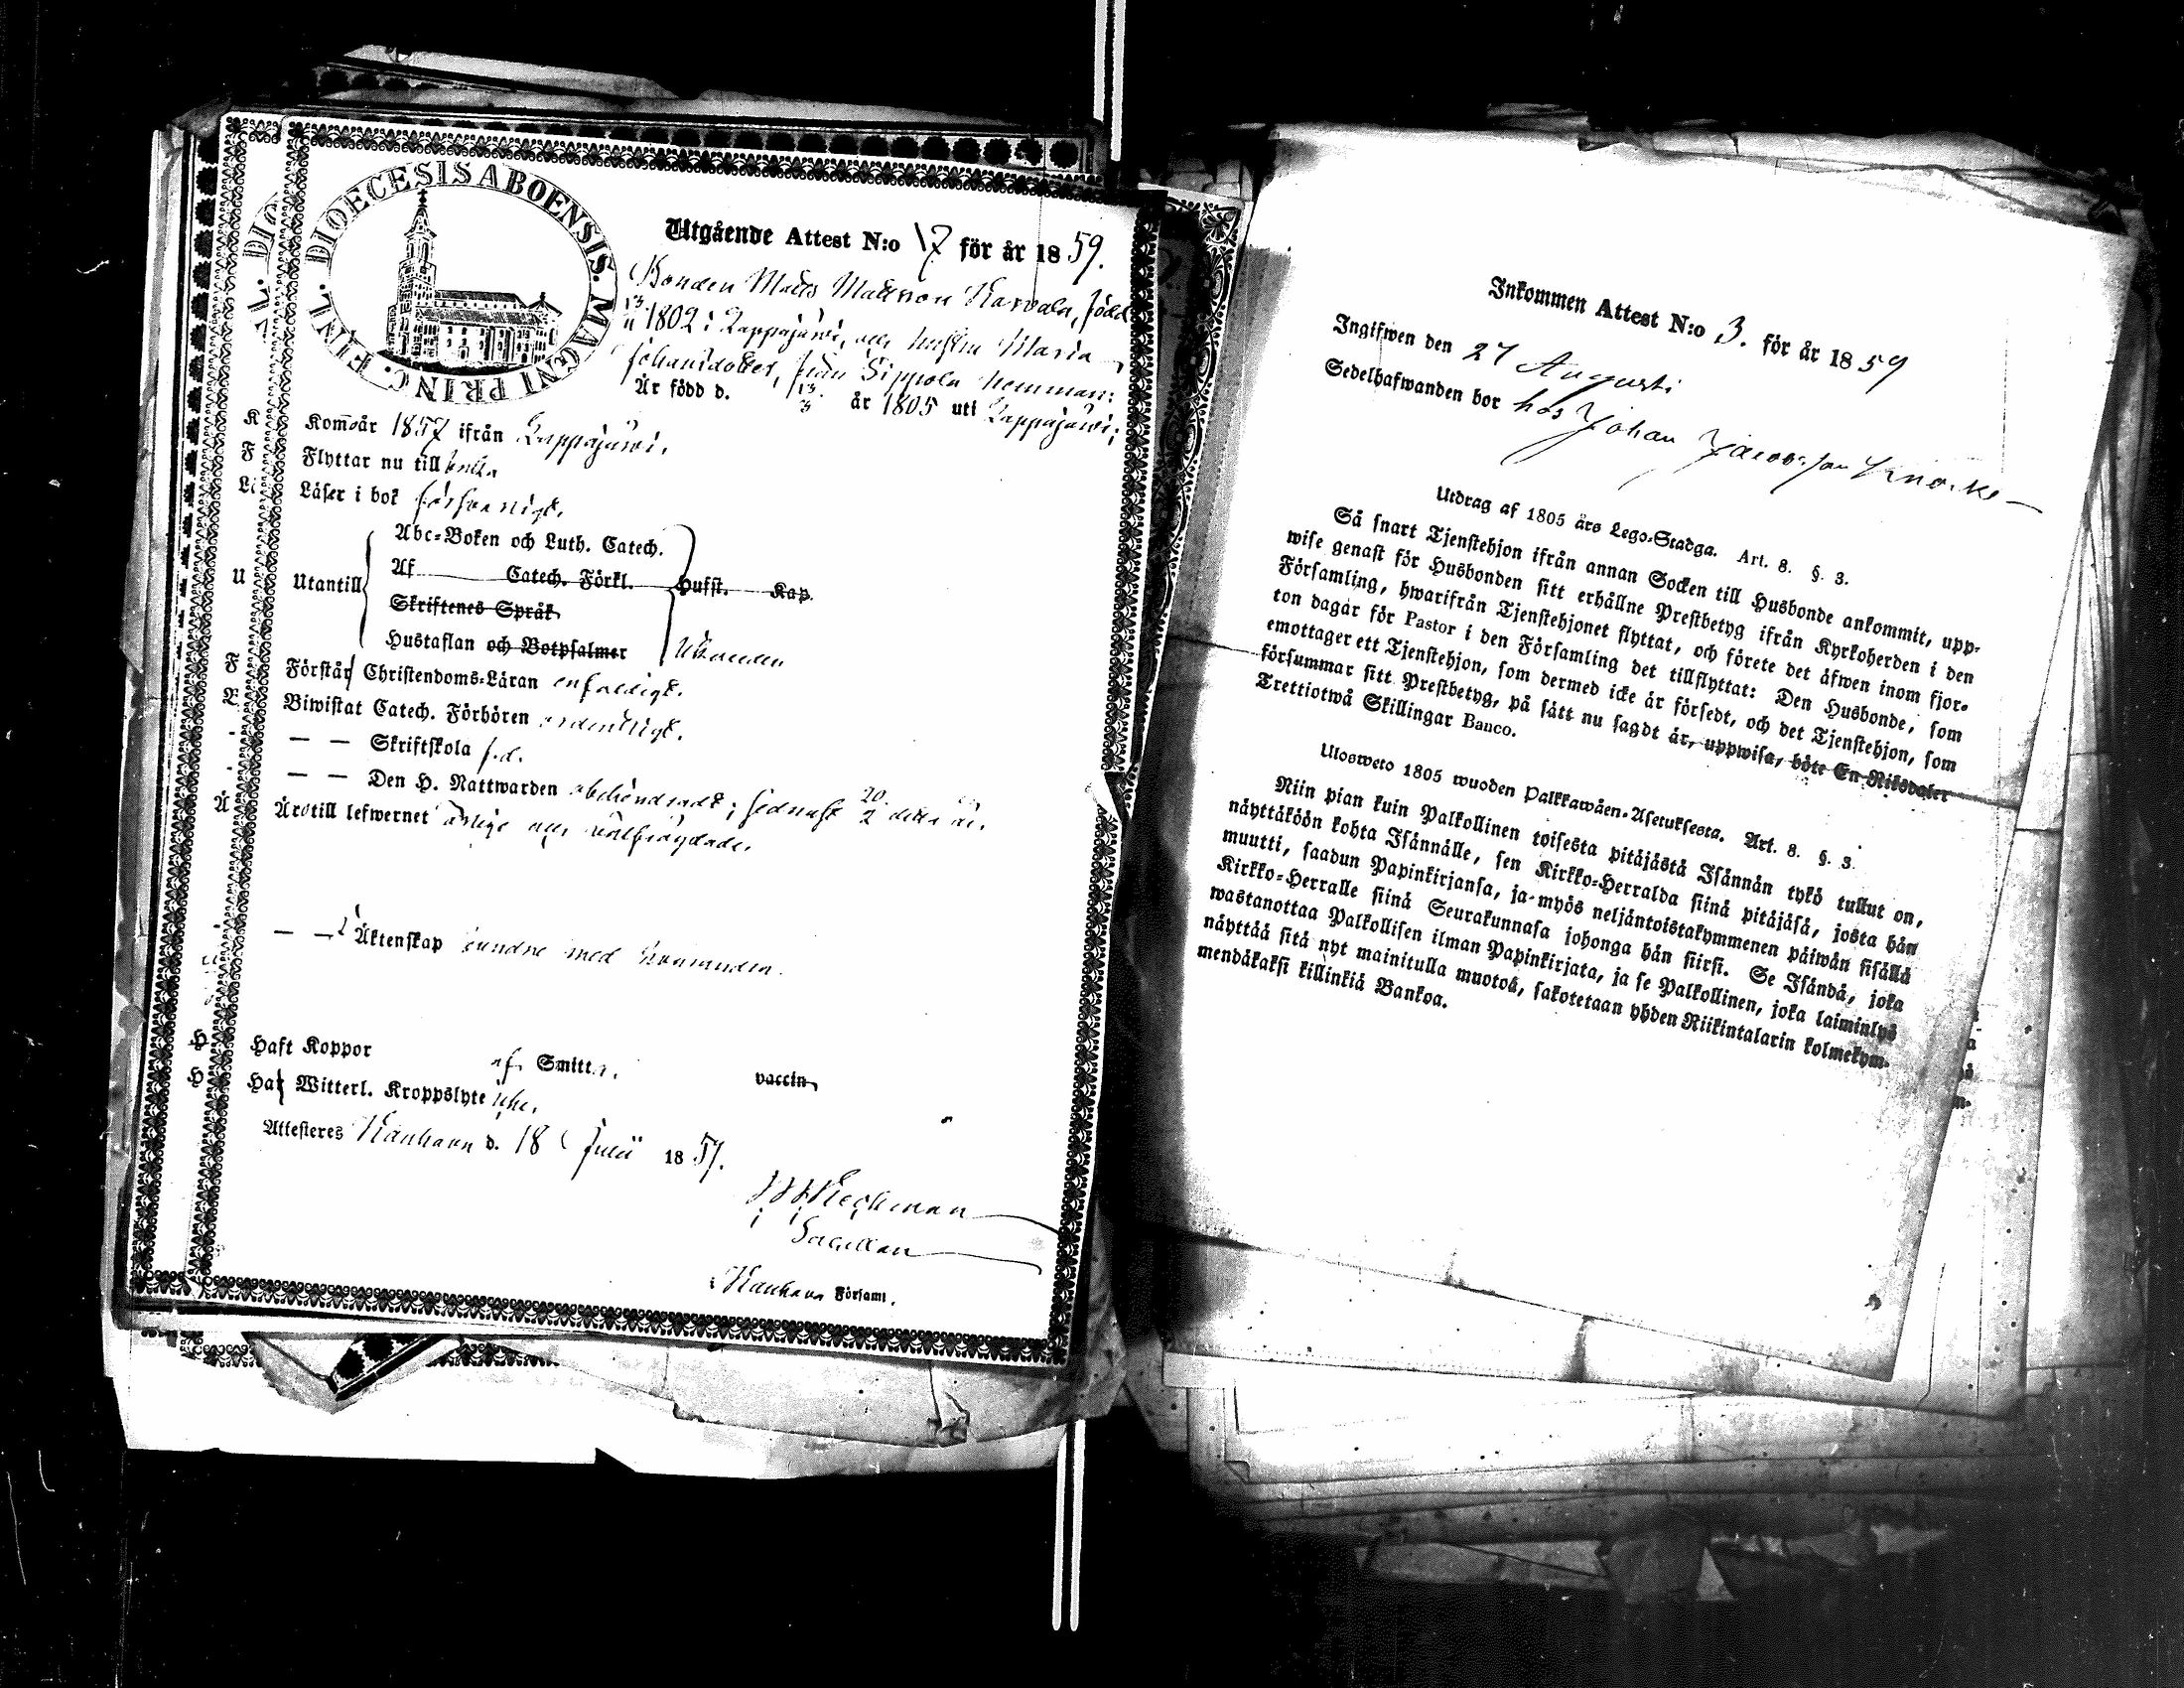 DIOECESIS ABOENSIS. MAGNI PRINC. FINL.
Utgående Attest N:o 17 för år 1859.
Bonden Matts Mattsson Karvala, född
13/11 1802 i Lappajärvi, och hustru Maria
Johansdotter, från Sippola hemman;
Är född d. 13/3 år 1805 uti Lappajärvi;
Kom̄år 1857 ifrån Lappajärvi.
Flyttar nu till
Läser i bok försvarligt.
Abc-Boken och Luth. Catech.
Af Catech. Förkl. Husst. Kap.
Utantill
Skriftenes Språk
Hustaflan och Botpsalmer
Förstår Christendoms-Läran enfaldigt.
Biwistat Catech. Förhören ordentligt.
— — Skriftskola f.d.
— — Den H. Nattwarden obehindradt; sednast 20/2 detta år.
Är till lefwernet ärlige och välfräjdade.
— — i Äktenskap
Haft Koppor af Smitt. vaccin.
Haf Witterl. Kroppslyte icke.
Attesteres Kauhava d. 18 Julii 1859.
Sacellan
i Kauhava Församl.
Inkommen Attest N:o 3. för år 1859
Ingifwen den 27 Augusti
Sedelhafwanden bor hos Johan Jacobsson
Utdrag af 1805 års Lego-Stadga. Art. 8. §. 3.
Så snart Tjenstehjon ifrån annan Socken till Husbonde ankommit, upp-
wise genast för Husbonden sitt erhållne Prestbetyg ifrån Kyrkoherden i den
Församling, hwarifrån Tjenstehjonet flyttat, och förete det äfwen inom fjor-
ton dagar för Pastor i den Församling det tillflyttat: Den Husbonde, som
emottager ett Tjenstehjon, som dermed icke är försedt, och det Tjenstehjon, som
försummar sitt Prestbetyg, på sätt nu sagdt är, uppwisa, böte En Riksdaler
Trettiotwå Skillingar Banco.
Ulosweto 1805 wuoden Palkkawäen-Asetuksesta. Art. 8. §. 3.
Niin pian kuin Palkollinen toisesta pitäjästä Isännän tykö tullut on,
näyttäköön kohta Isännälle, sen Kirkko-Herralda siinä pitäjäsä, josta hän
muutti, saadun Papinkirjansa, ja myös neljäntoistakymmenen päiwän sisällä
Kirkko-Herralle siinä Seurakunnasa johonga hän siirsi. Se Isändä, joka
wastanottaa Palkollisen ilman Papinkirjata, ja se Palkollinen, joka laiminlyö
näyttää sitä nyt mainitulla muotoa, sakotetaan yhden Riikintalarin kolmekym-
mendäkaksi killinkiä Bankoa.